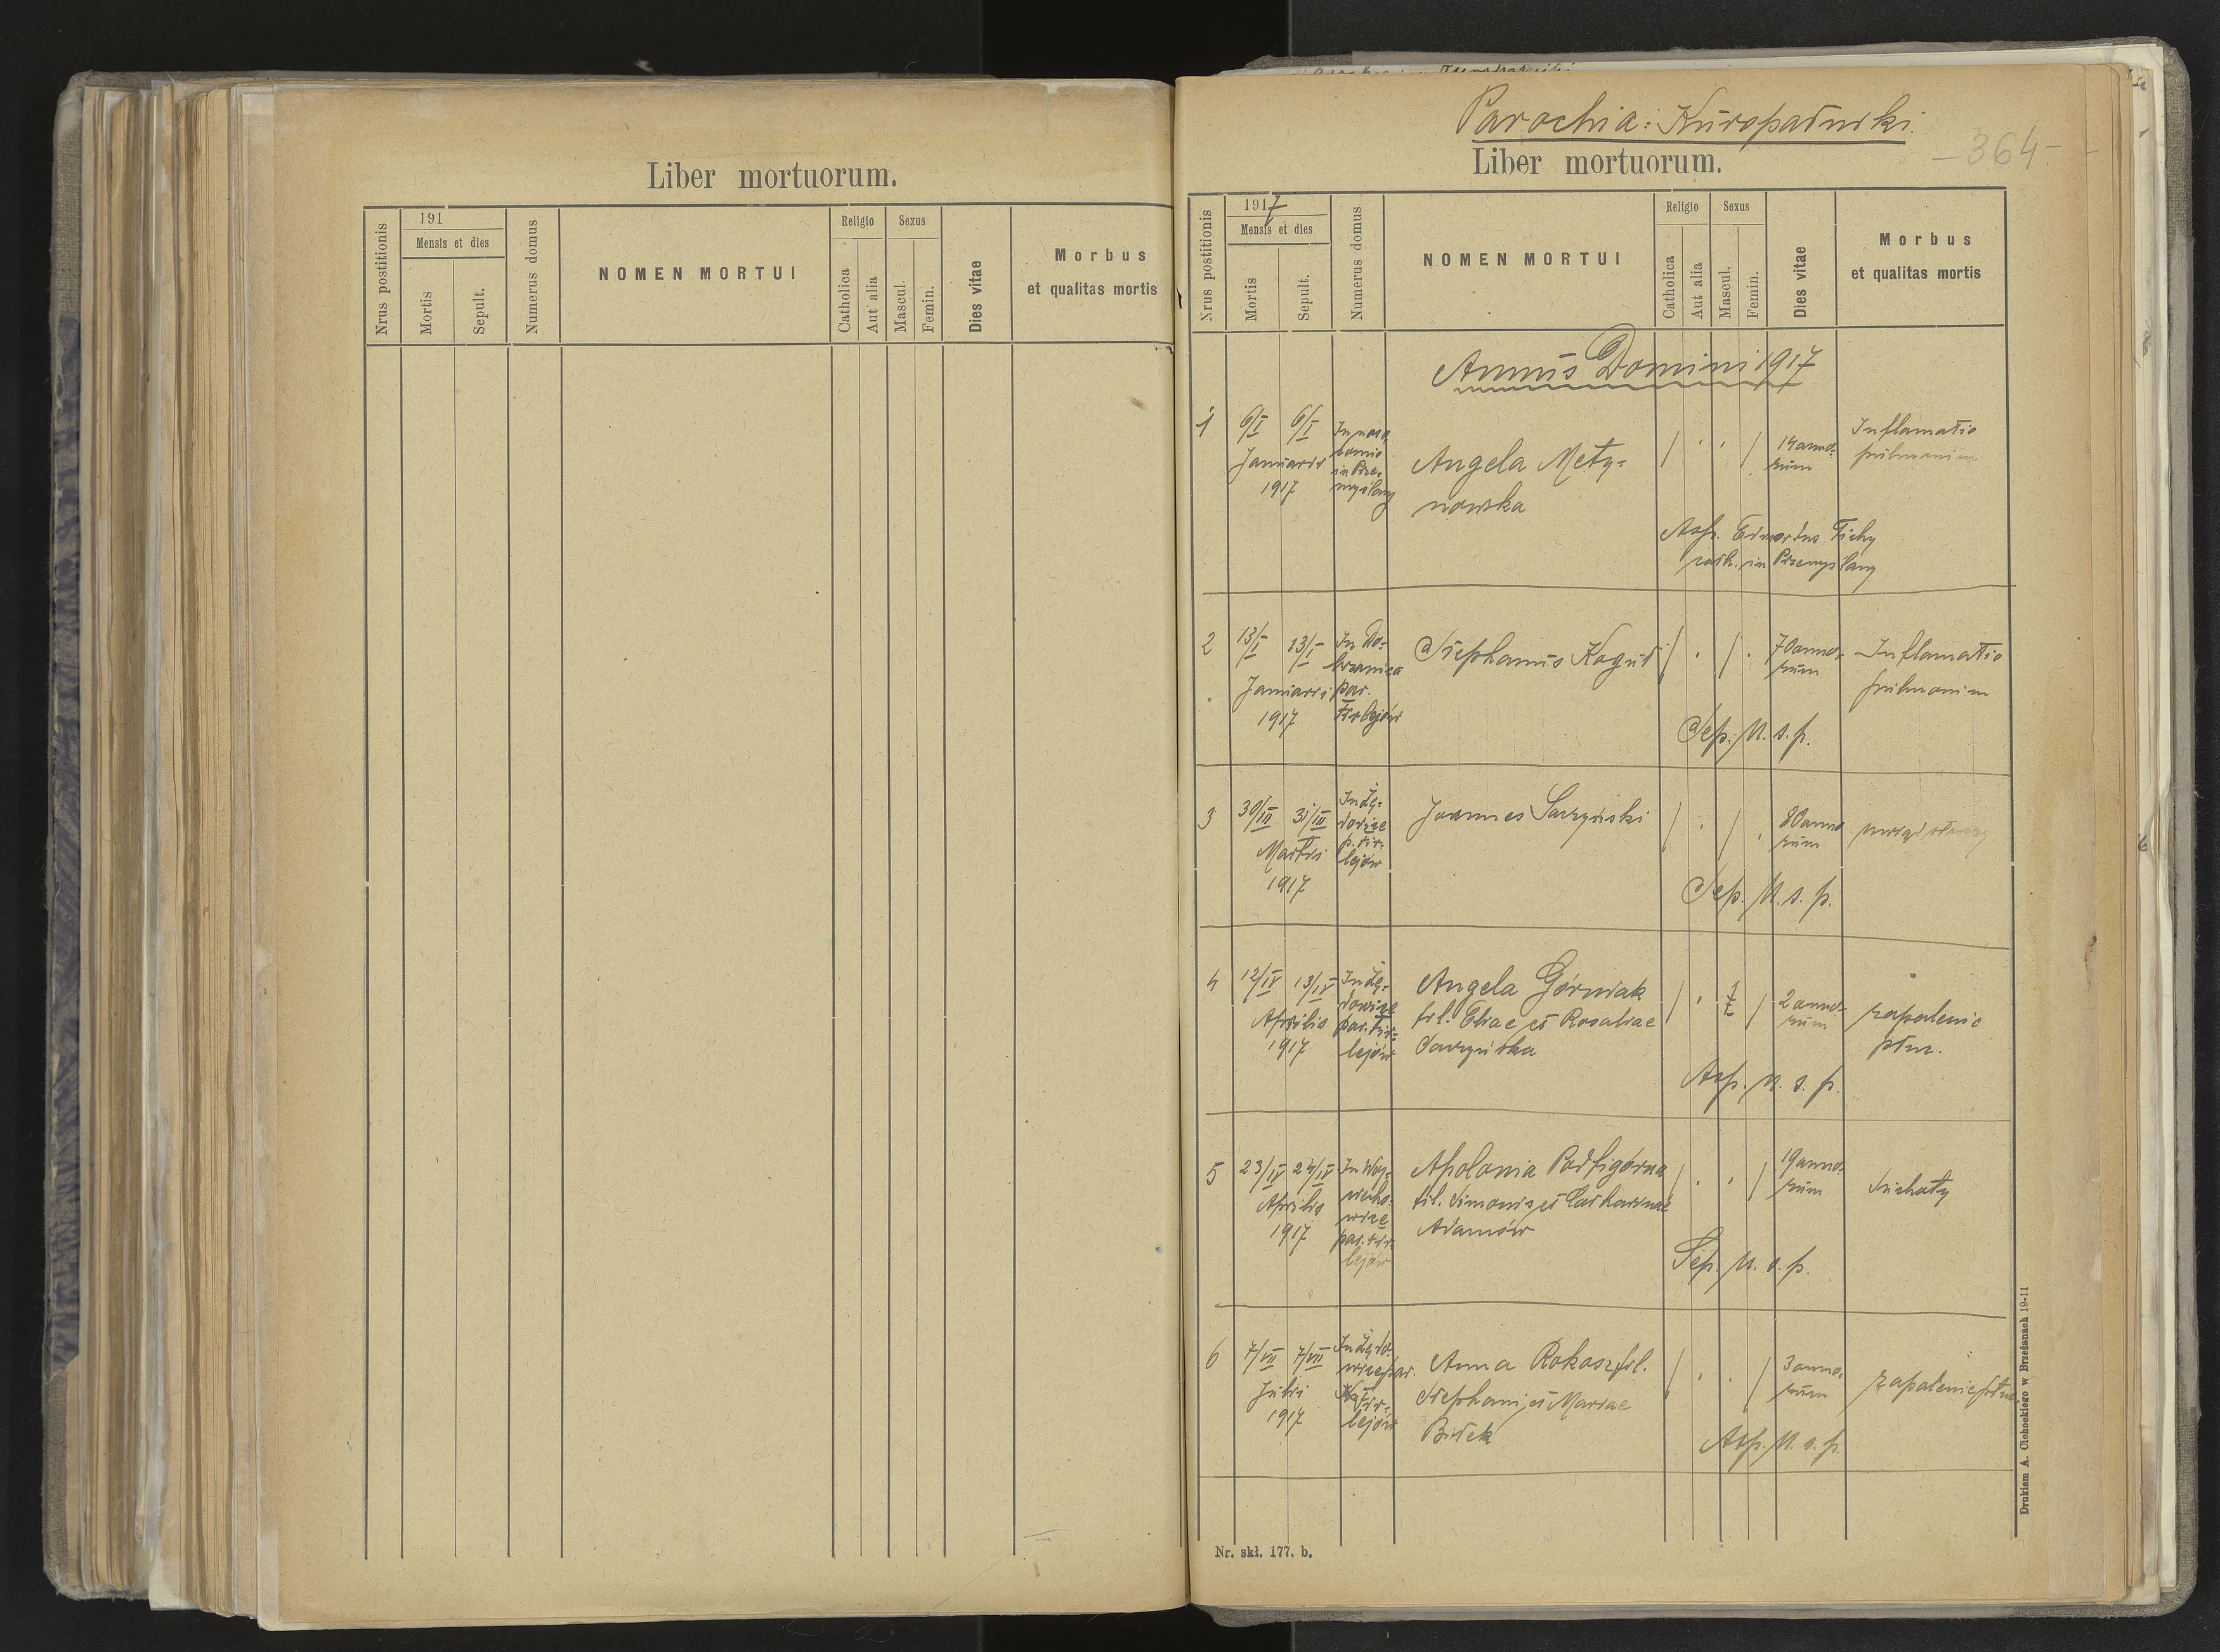 Liber mortuorum.
Nrus postitionis
191
Mensis et dies
Mortis
Sepult.
Numerus domus
NOMEN MORTUI
Religio
Catholica
Aut alia
Sexus
Mascul.
Femin.
Dies vitae
Morbus
et qualitas mortis
Parochia: Kuropatniki.
Liber mortuorum.
-364-
Nrus postitionis
1917
Mensis et dies
Mortis
Sepult.
Numerus domus
NOMEN MORTUI
Religio
Catholica
Aut alia
Sexus
Mascul.
Femin.
Dies vitae
Morbus
et qualitas mortis
Annus Domini 1917
1
6/I 6/I
Januarii
1917
in Prze-
myślany
Angela Mety-
nowska
14 anno-
rum
Inflamatio
pulmonium
Asp. Edwardus Tichy
in Przemyślany
2
13/I 13/I
Januarii
1917
In Do-
brzanica
par.
Firlejów
Stephanus Kogut
70 anno-
rum
Inflamatio
pulmonium
Sep. N. s. p.
3
30/III 31/III
Martii
1917
In Żę-
dowice
p. Fir-
lejów
Joannes Savryński
80 anno
rum
Sep. N. s. p.
4
12/IV 13/IV
Aprilis
1917
In Żę-
dowice
par. Fir-
lejów
Angela Górniak
fil. Eliae et Rosaliae
Savryńska
2 anno-
rum
zapalenie
płuc.
Asp. N. s. p.
5
23/IV 24/IV
Aprilis
1917
In Woj-
ciecho-
wice
par. Fir-
lejów
Apolonia Podfigórna
fil. Simonis et Catharinae
Adamów
19 anno-
rum
Suchoty
Sep. N. s. p.
6
7/VII 7/VII
Julii
1917
In Żędo-
wice par.
Fir-
lejów
Anna Rokosz fil.
Stephani et Mariae
Bidek
3 anno-
rum
Zapalenie płuc
Asp. N. s. p.
Nr. skł. 177. b.
Drukiem A. Cichockiego w Brzeżanach 19-11